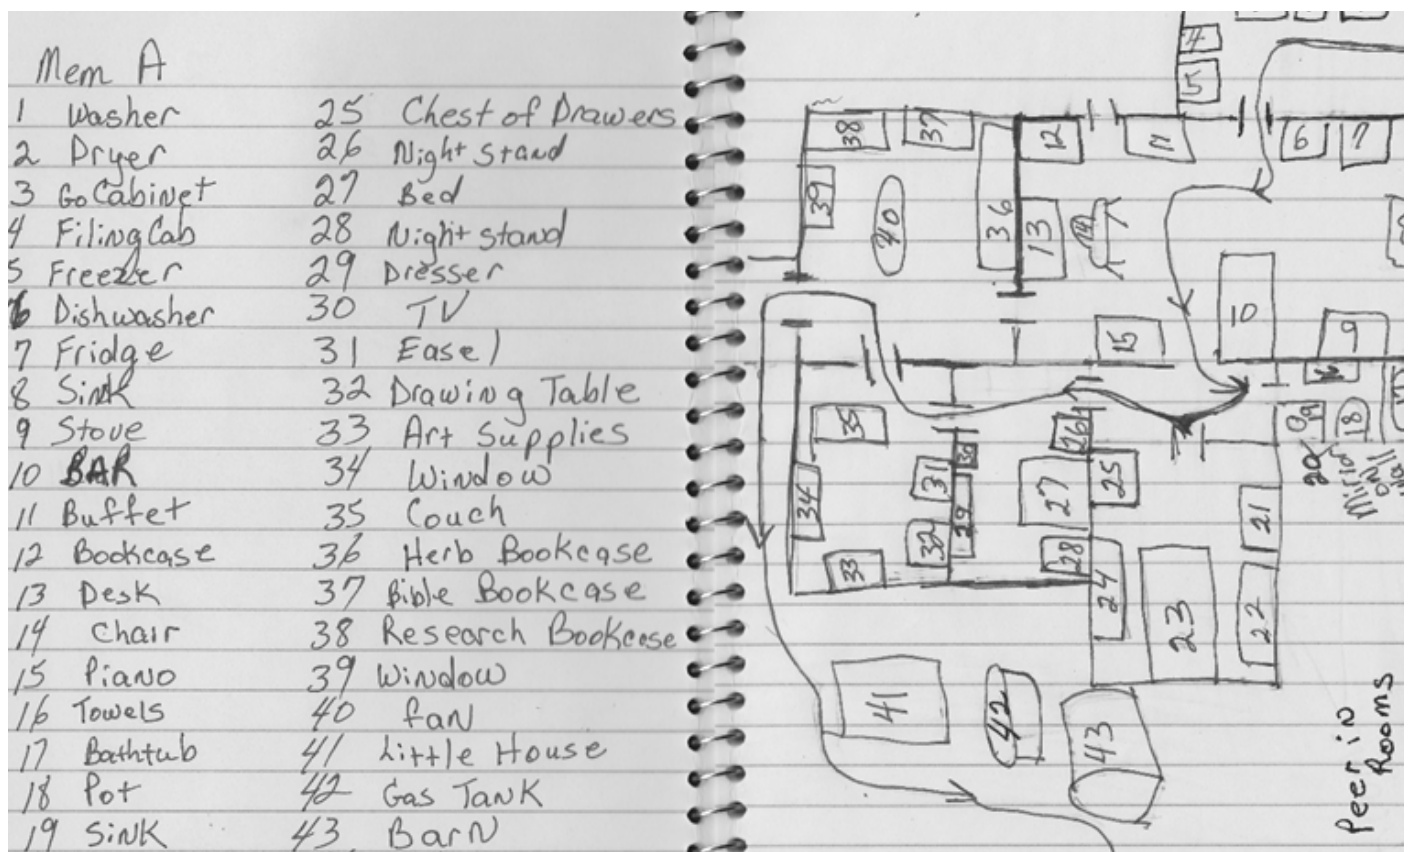 Mem A
1 Washer
2 Dryer
3 GoCabinet
4 Filing Cab
5 Freezer
6 Dishwasher
7 Fridge
8 Sink
9 Stove
10 BAR
11 Buffet
12 Bookcase
13 Desk
14 Chair
15 Piano
16 Towels
17 Bathtub
18 Pot
19 Sink
25 Chest of Drawers
26 Night Stand
27 Bed
28 Night Stand
29 Dresser
30 TV
31 Easel
32 Drawing Table
33 Art Supplies
34 Window
35 Couch
36 Herb Bookcase
37 Bible Bookcase
38 Research Bookcase
39 Window
40 fan
41 Little House
42 Gas Tank
43 Barn
4
5
38
37
12
11
6
7
39
40
36
13
14
10
9
15
16
35
26
19
18
20
Mirror
on
wall
30
31
27
25
34
29
32
21
33
28
24
23
22
41
42
43
Peer in
Rooms